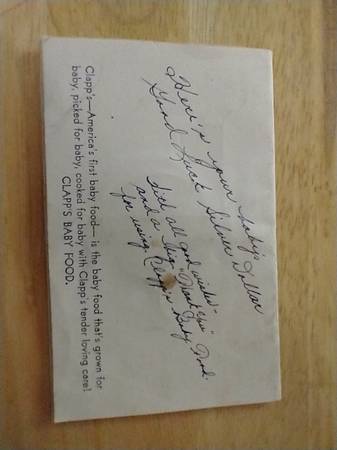 Here's your baby's
Good Luck Silver Dollar
With all good wishes -
and a big "Thank You"
for using Clapp's Baby Food.
Clapp's—America's first baby food—is the baby food that's grown for
baby, picked for baby, cooked for baby with Clapp's tender loving care!
CLAPP'S BABY FOOD.